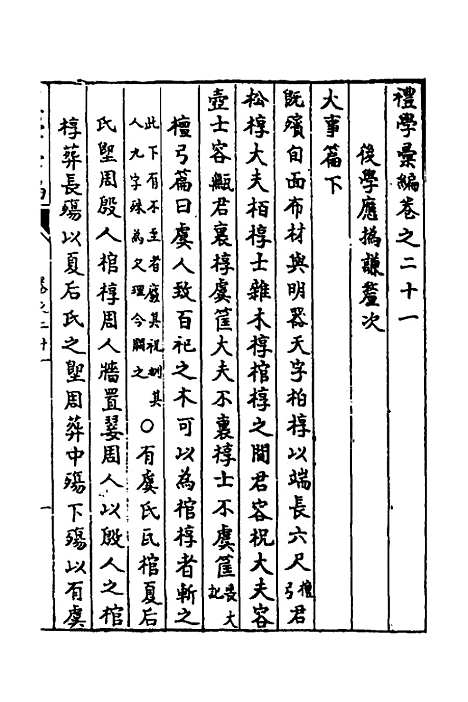 禮學彙編卷之二十一
後學應撝謙螯次
大事篇下
既殯旬而布材與明器天子柏椁以端長六尺檀弓君
松椁大夫栢椁士雜木椁棺椁之間君容柷大夫容
壺士容甒君裏椁虞筐大夫不裏椁士不虞筐喪大記
檀弓篇曰虞人致百祀之木可以為棺椁者斬之
此下有不至者廢其祀刎其人九字殊為欠理今闕之○有虞氏瓦棺夏后
氏堲周殷人棺椁周人牆置翣周人以殷人之棺
椁葬長殤以夏后氏之堲周葬中殤下殤以有虞
卷之二十一
一